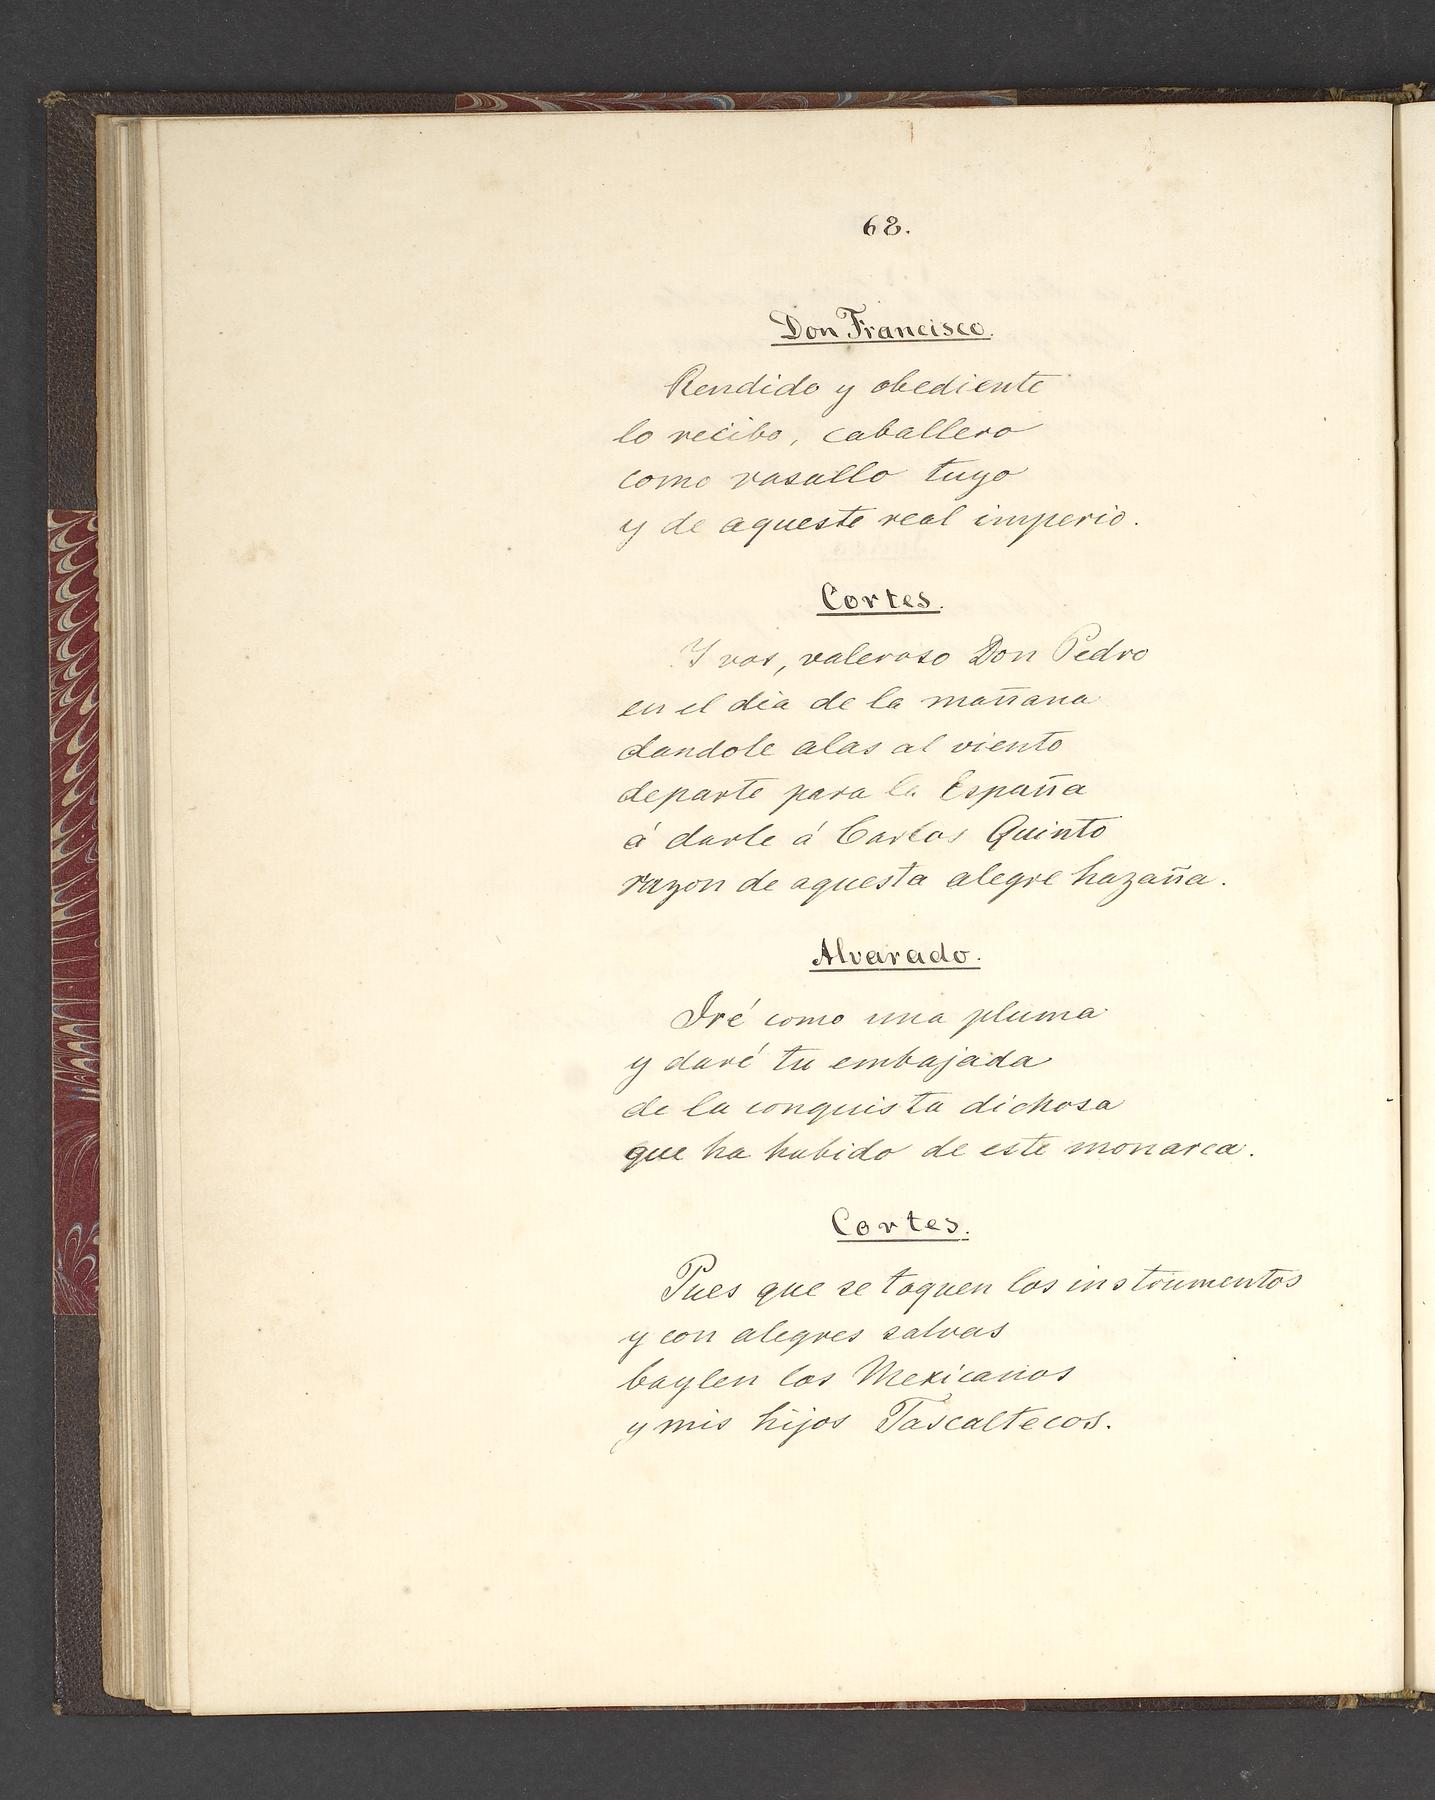 68.
Don Francisco.
Rendido y obediente
lo recibo, caballero
como vasallo tuyo
y de aqueste real imperio.
Cortes.
Y vos, valeroso Don Pedro
en el dia de la mañana
dandole alas al viento
departe para la España
á darle á Carlos Quinto
razon de aquesta alegre hazaña.
Alvarado.
Iré como una pluma
y daré tu embajada
de la conquista dichosa
que ha habido de este monarca.
Cortes.
Pues que se toquen los instrumentos
y con alegres salvas
baylen los Mexicanos
y mis hijos Tascaltecos.